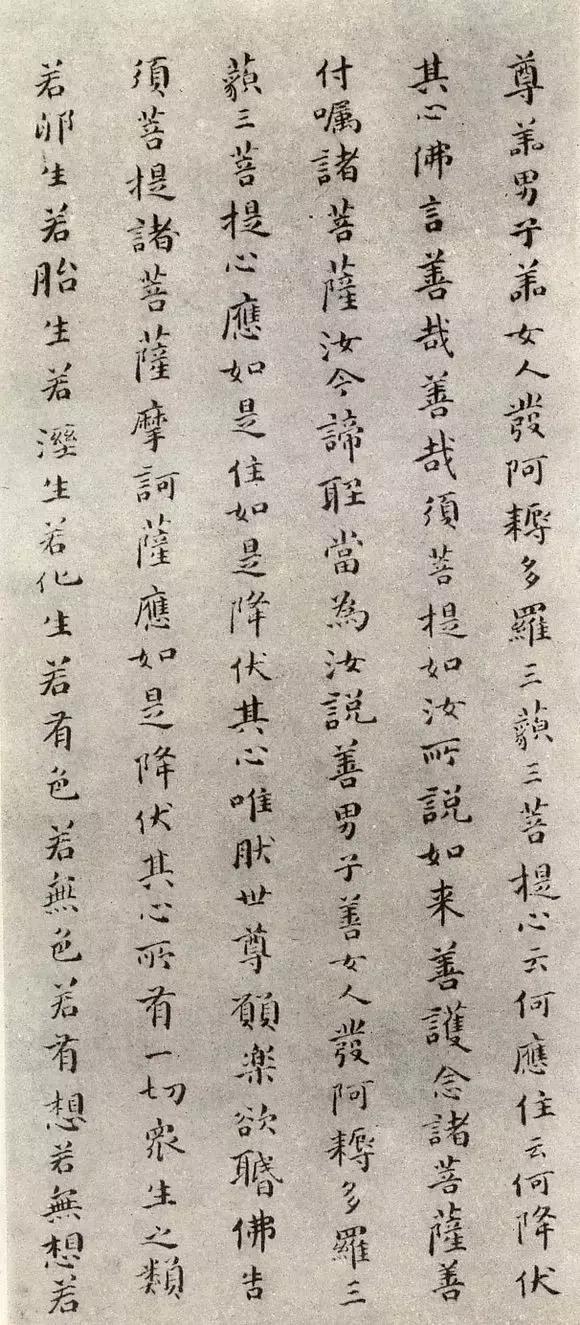 尊善男子善女人發阿耨多羅三藐三菩提心云何應住云何降伏
其心佛言善哉善哉須菩提如汝所說如来善護念諸菩薩善
付囑諸菩薩汝今諦聽當為汝說善男子善女人發阿耨多羅三
藐三菩提心應如是住如是降伏其心唯然世尊願樂欲聞佛告
須菩提諸菩薩摩訶薩應如是降伏其心所有一切眾生之類
若卵生若胎生若溼生若化生若有色若無色若有想若無想若